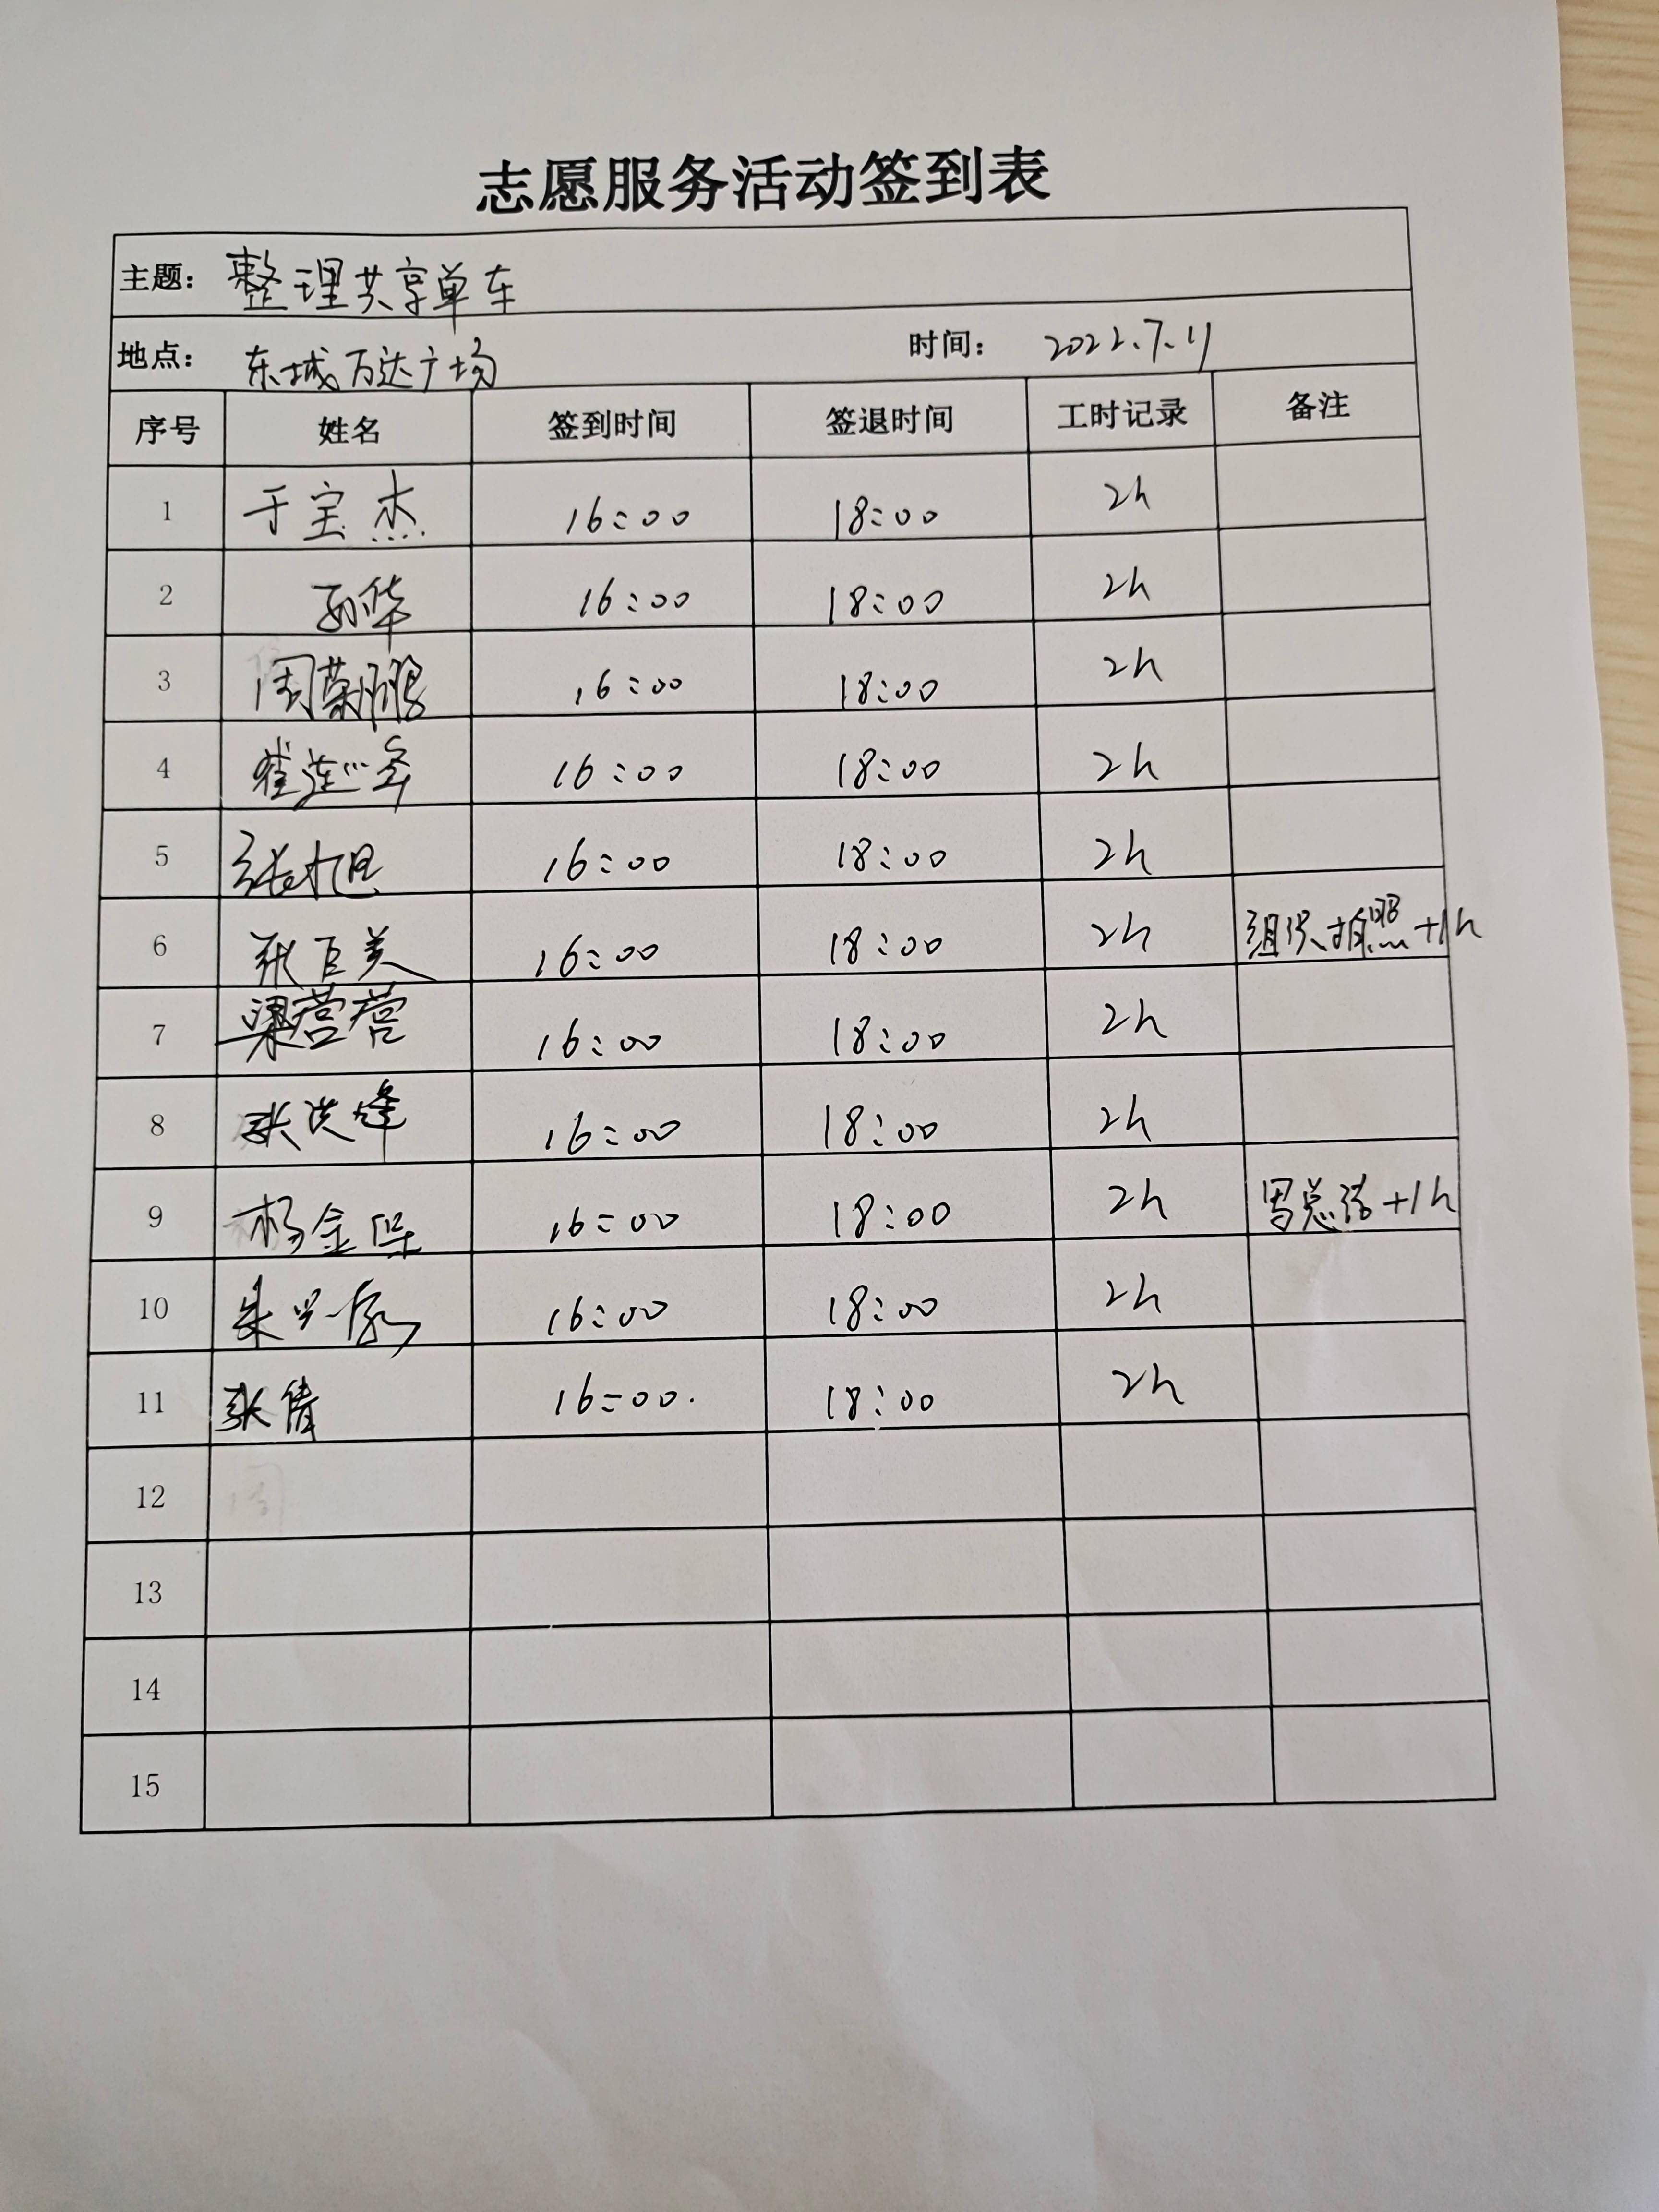 志愿服务活动签到表
主题： 整理共享单车
地点： 东城万达广场 时间： 2022.7.11
序号 姓名 签到时间 签退时间 工时记录 备注
1 于宝杰 16:00 18:00 2h
2 孙华 16:00 18:00 2h
3 周荣鹏 16:00 18:00 2h
4 崔莲峰 16:00 18:00 2h
5 张旭 16:00 18:00 2h
6 张巨美 16:00 18:00 2h 组织、拍照+1h
7 梁营营 16:00 18:00 2h
8 张洪峰 16:00 18:00 2h
9 杨金保 16:00 18:00 2h 写总结+1h
10 朱 16:00 18:00 2h
11 张倩 16:00. 18:00 2h
12
13
14
15